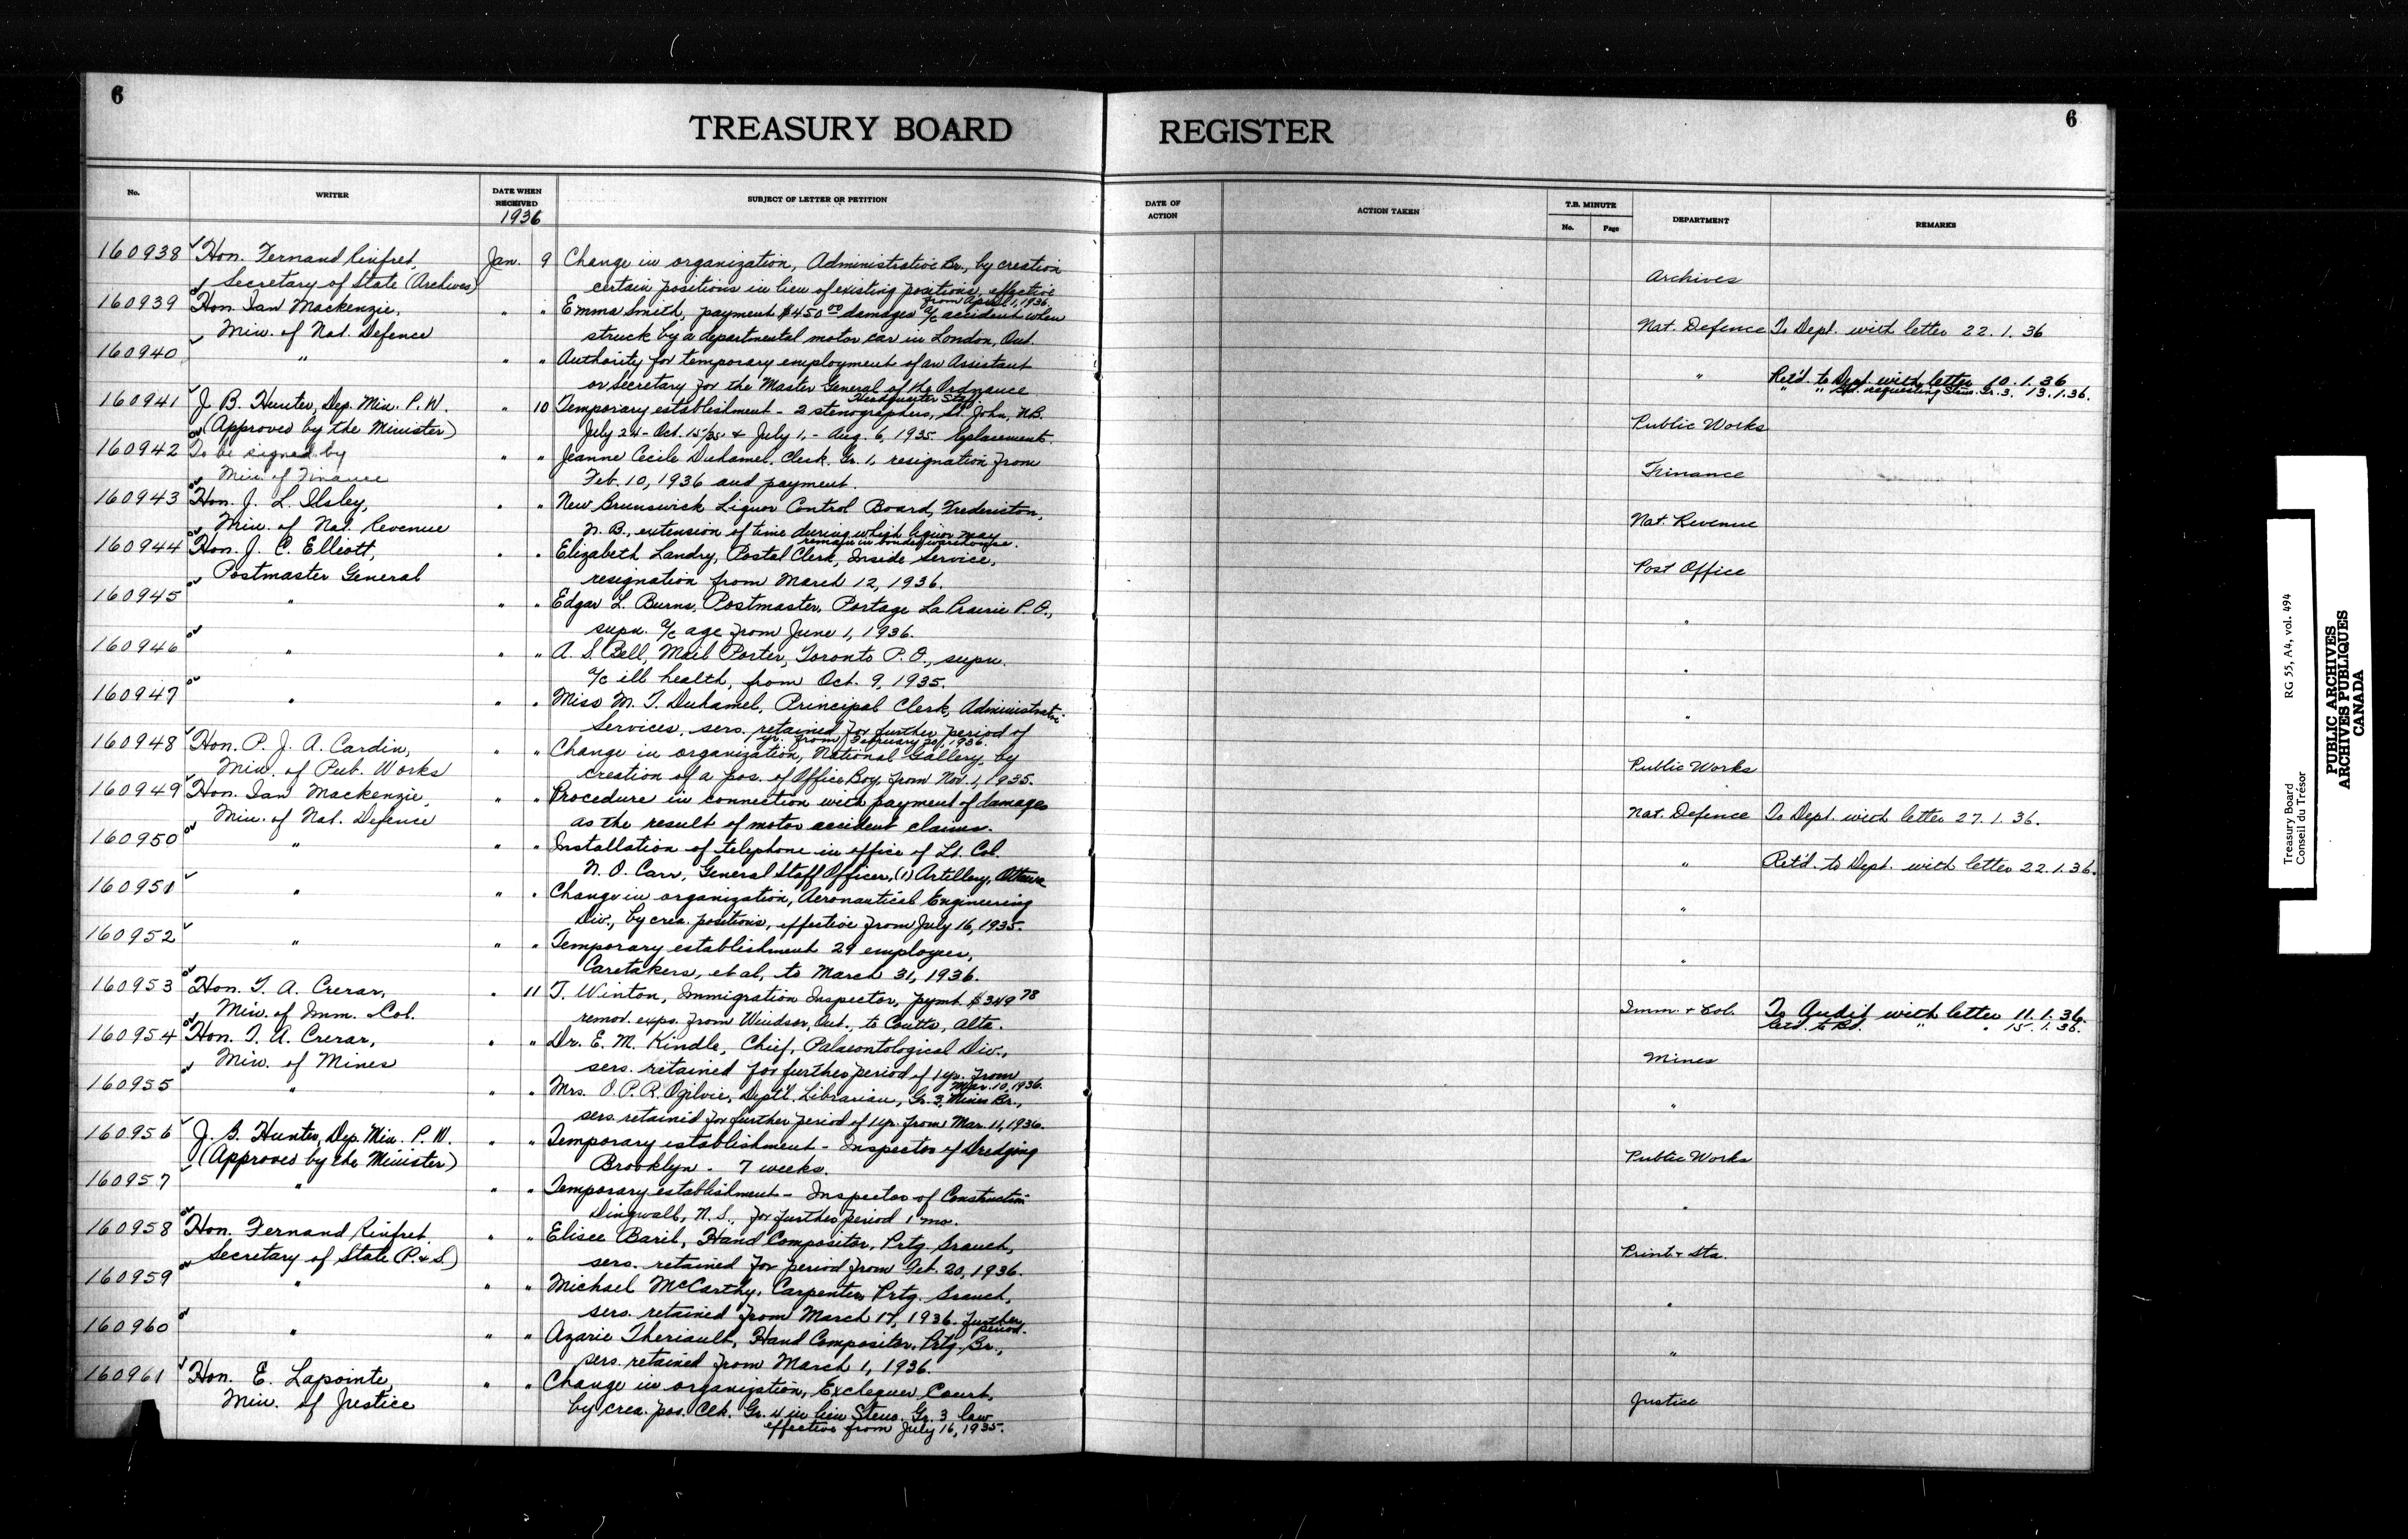 6
TREASURY BOARD
REGISTER
6
No.
WRITER
DATE WHEN RECEIVED
1936
SUBJECT OF LETTER OR PETITION
DATE OF ACTION
ACTION TAKEN
T.B. MINUTE
No.
Page
DEPARTMENT
REMARKS
160938 Hon. Fernand Rinfret, Jan. 9 Change in organization, Administrative Br., by creation
Secretary of State (Archives) certain positions in lieu of existing positions, effective Archives
from April 1, 1936.
160939 Hon. Ian Mackenzie, " " Emma Smith, payment $450.00 damages a/c accident when
Min. of Nat. Defence struck by a departmental motor car in London, Ont. Nat. Defence To Dept. with letter 22.1.36
160940 " " " Authority for temporary employment of an Assistant
or Secretary for the Master General of the Ordnance " Ret'd. to Dept. with letter 10.1.36
Headquarter Staff " " requesting Steno. Gr. 3. 13.1.36.
160941 J. B. Hunter, Dep. Min. P. W. " 10 Temporary establishment - 2 stenographers, St. John, N.B.
(Approved by the Minister) July 24 - Oct. 15/35 & July 1, - Aug. 6, 1935. Replacements. Public Works
160942 To be signed by " " Jeanne Cecile Duhamel, Clerk, Gr. 1, resignation from
Min. of Finance Feb. 10, 1936 and payment. Finance
160943 Hon. J. L. Ilsley, " " New Brunswick Liquor Control Board, Fredericton,
Min. of Nat. Revenue N. B., extension of time during which liquor may Nat. Revenue
remain in bonded warehouse.
160944 Hon. J. C. Elliott, " " Elizabeth Landry, Postal Clerk, Inside Service,
Postmaster General resignation from March 12, 1936. Post Office
160945 " " " Edgar L. Burns, Postmaster, Portage La Prairie P. O.,
supn. a/c age from June 1, 1936. "
160946 " " " A. S. Bell, Mail Porter, Toronto P. O., supn.
a/c ill health, from Oct. 9, 1935. "
160947 " " " Miss M. T. Duhamel, Principal Clerk, Administrative
Services, sers. retained for further period of "
1 yr. from February 20, 1936.
160948 Hon. P. J. A. Cardin, " " Change in organization, National Gallery, by
Min. of Pub. Works creation of a pos. of Office Boy, from Nov. 1, 1935. Public Works
160949 Hon. Ian Mackenzie, " " Procedure in connection with payment of damages
Min. of Nat. Defence as the result of motor accident claims. Nat. Defence To Dept. with letter 27.1.36.
160950 " " " Installation of telephone in office of Lt. Col.
N. O. Carr, General Staff Officer, (1) Artillery, Ottawa " Ret'd. to Dept. with letter 22.1.36.
160951 " " " Change in organization, Aeronautical Engineering
Div., by crea. positions, effective from July 16, 1935. "
160952 " " " Temporary establishment 29 employees,
Caretakers, et al, to March 31, 1936. "
160953 Hon. T. A. Crerar, " 11 T. Winton, Immigration Inspector, pymt. $349.78
Min. of Imm. & Col. remov. exps. from Windsor, Ont., to Coutts, Alta. Imm. & Col. To Audit with letter 11.1.36.
Ret'd. to Bd. " " 15.1.36.
160954 Hon. T. A. Crerar, " " Dr. E. M. Kindle, Chief, Palaeontological Div.,
Min. of Mines sers. retained for further period of 1 yr. from Mines
Mar. 10, 1936.
160955 " " " Mrs. O. P. R. Ogilvie, Dept'l. Librarian, Gr. 3, Mines Br.,
sers. retained for further period of 1 yr. from Mar. 11, 1936. "
160956 J. B. Hunter, Dep. Min. P. W. " " Temporary establishment - Inspector of Dredging
(Approved by the Minister) Brooklyn - 7 weeks. Public Works
160957 " " " Temporary establishment - Inspector of Construction
Dingwall, N. S., for further period 1 mo. "
160958 Hon. Fernand Rinfret, " " Elisee Baril, Hand Compositor, Prtg. Branch,
Secretary of State (P. & S.) sers. retained for period from Feb. 20, 1936. Print. & Sta.
160959 " " " Michael McCarthy, Carpenter, Prtg. Branch,
sers. retained from March 17, 1936. further "
period.
160960 " " " Azarie Theriault, Hand Compositor, Prtg. Br.,
sers. retained from March 1, 1936. "
160961 Hon. E. Lapointe, " " Change in organization, Exchequer Court,
Min. of Justice by crea. pos. Clk. Gr. 4 in lieu Steno. Gr. 3 law Justice
effective from July 16, 1935.
Treasury Board RG 55, A4, vol. 494
Conseil du Trésor
PUBLIC ARCHIVES
ARCHIVES PUBLIQUES
CANADA